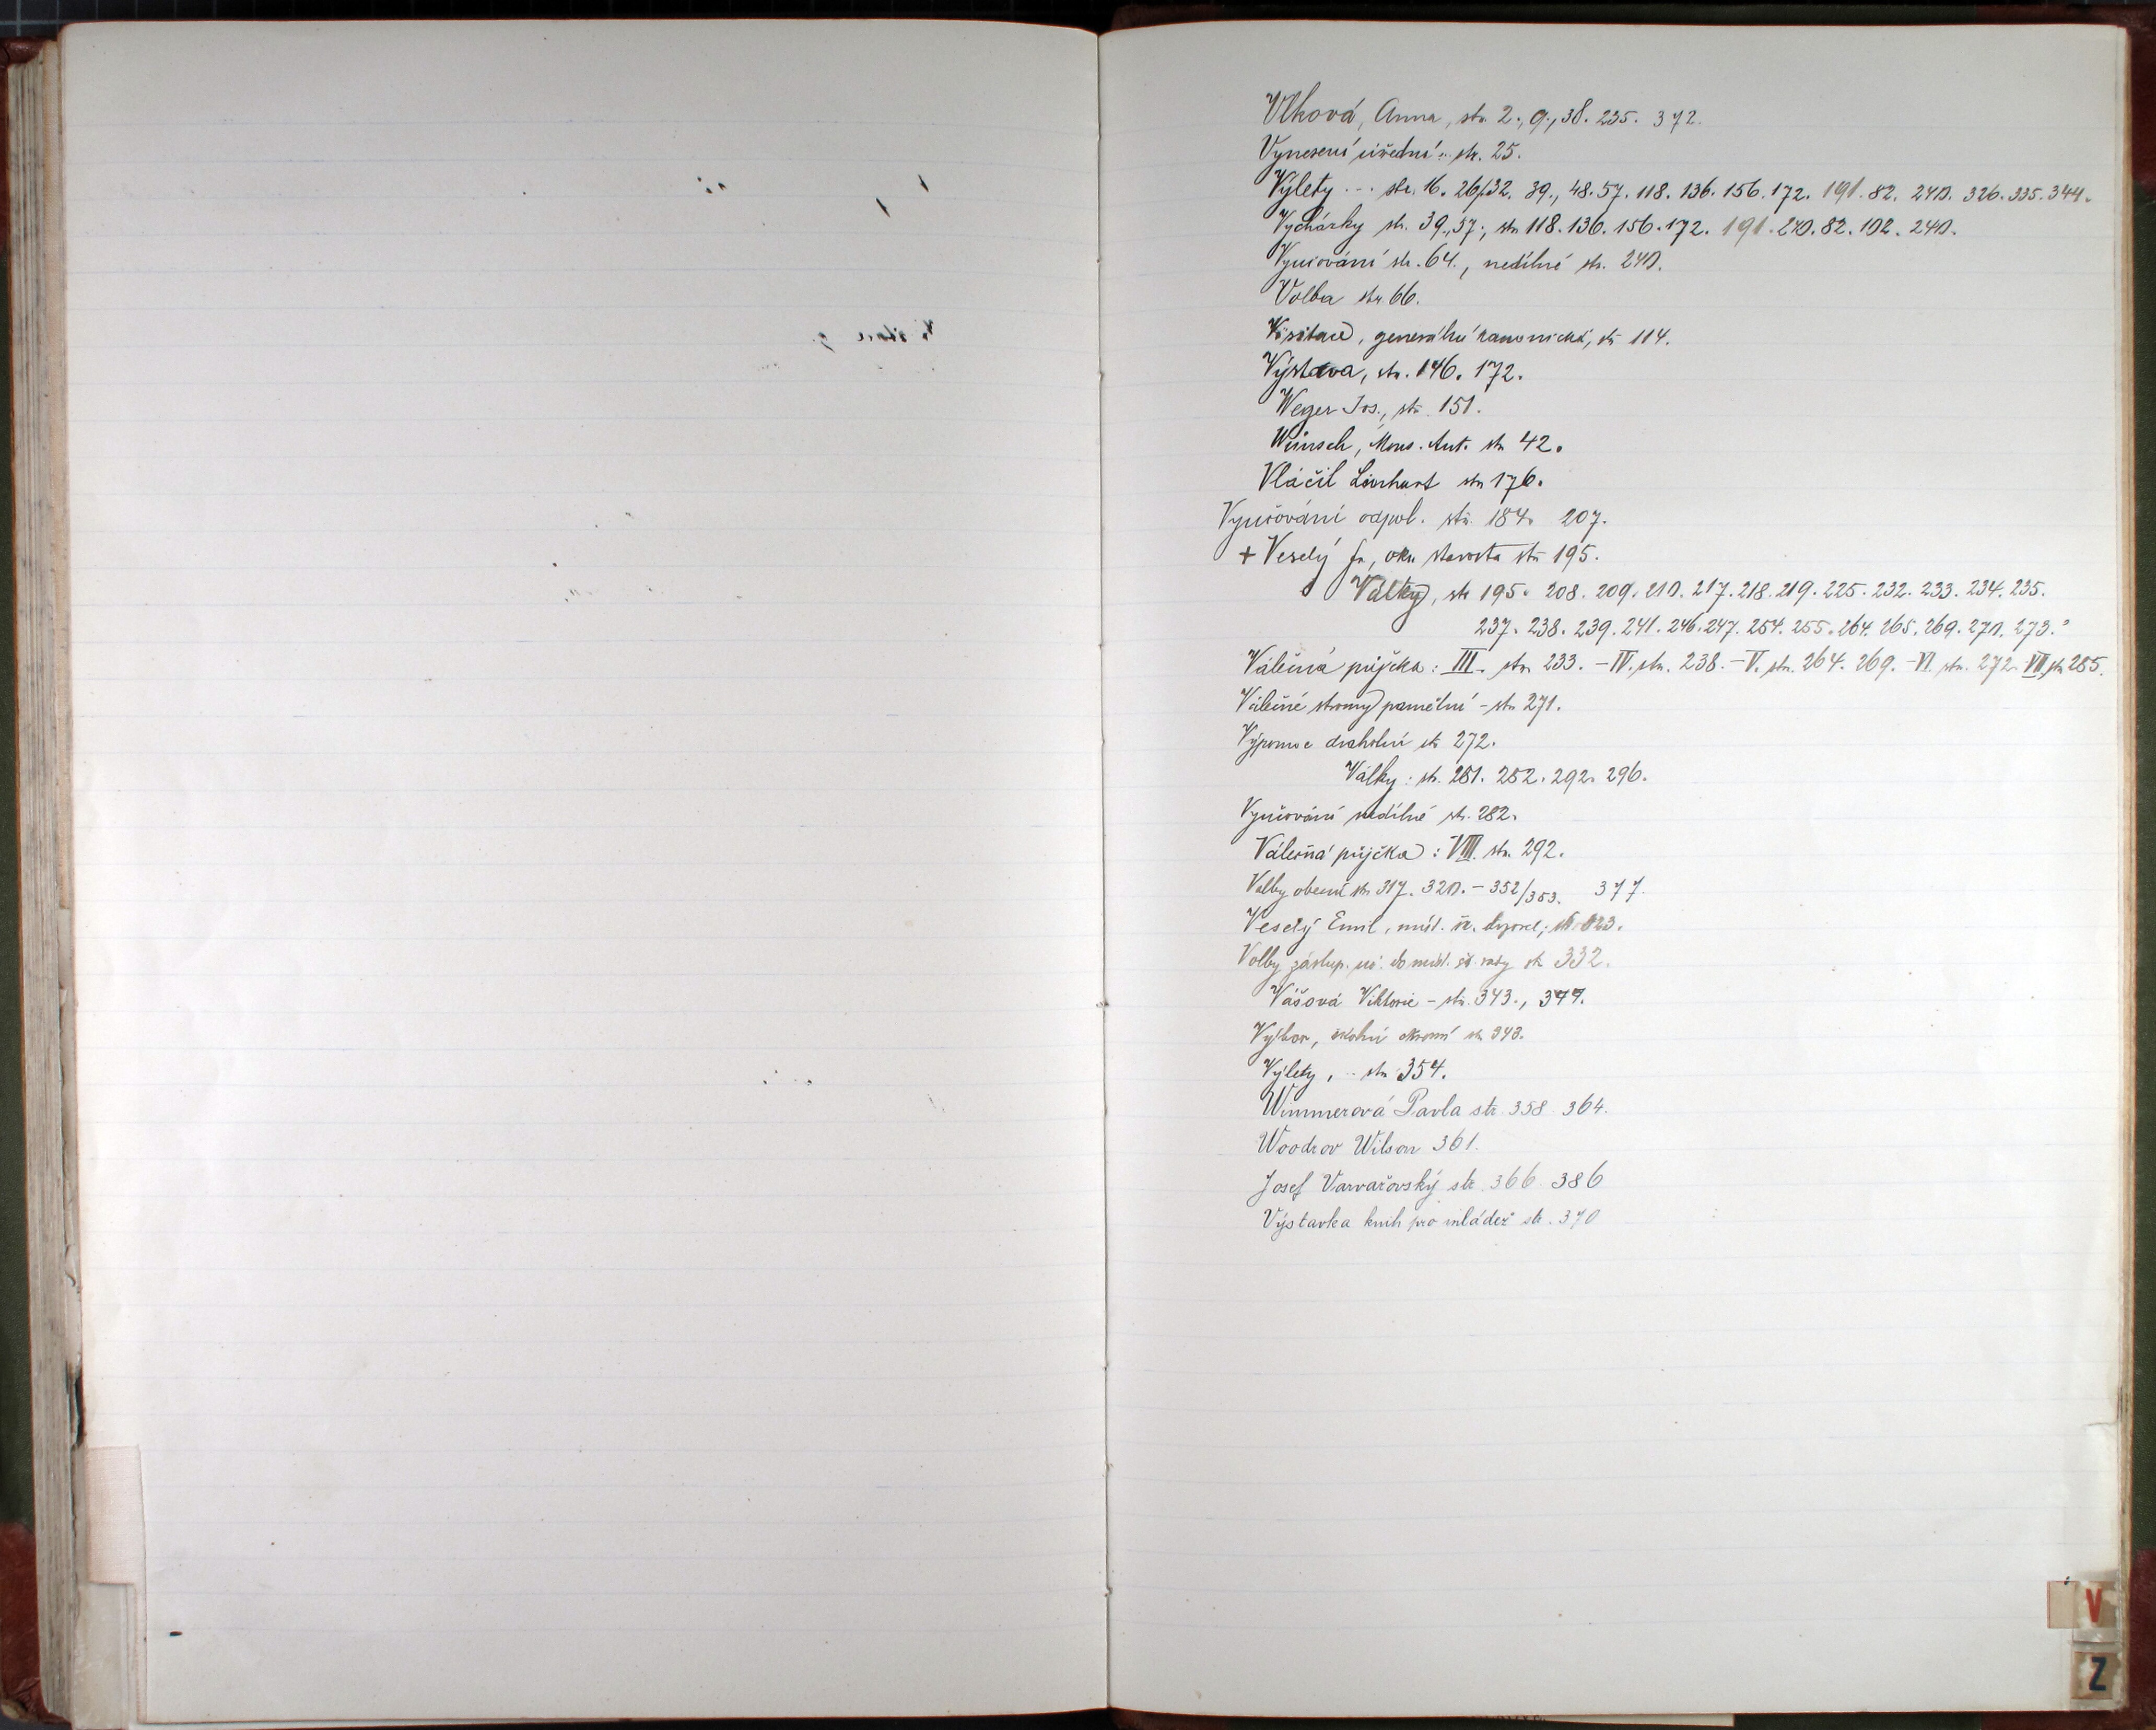 Vlková, Anna, str. 2., 9., 38. 235. 372.
Vynesení úřední .. str. 25.
Výlety ... str. 16. 26/32. 39., 48. 57. 118. 136. 156. 172. 191. 82. 240. 326. 335. 344.
Vycházky str. 39., 57., str. 118. 136. 156. 172. 191. 240. 82. 102. 240.
Vyučování str. 64., nedílné str. 240.
Volba str. 66.
Visitace, generální kanonická, str. 114.
Výstava, str. 146. 172.
Weger Jos., str. 151.
Wünsch, Mons. Ant. str. 42.
Vláčil Linhart str. 176.
Vyučování odpol. str. 184. 207.
+ Veselý Jr., okr. starosta str. 195.
Války, str. 195. 208. 209. 210. 217. 218. 219. 225. 232. 233. 234. 235.
237. 238. 239. 241. 246. 247. 254. 255. 264. 265. 269. 270. 273.
Válečná půjčka: III. str. 233. – IV. str. 238. – V. str. 264. 269. – VI. str. 272. VII. str. 285.
Válečné stromy pamětní – str. 271.
Výpomoc drahotní str. 272.
Války: str. 281. 282. 292. 296.
Vyučování nedílné str. 282.
Válečná půjčka: VIII. str. 292.
Volby obecní str. 317. 320. – 352/353. 377.
Veselý Emil, míst.
Volby zástup. uč. do míst. šk. rady str. 332.
Vášová Viktorie – str. 343., 377.
Výbor, školní okresní str. 343.
Výlety, .. str. 354.
Wimmerová Pavla str. 358. 364.
Woodrov Wilson 361.
Josef Varvařovský str. 366. 386
Výstavka knih pro mládež str. 370
V
Z